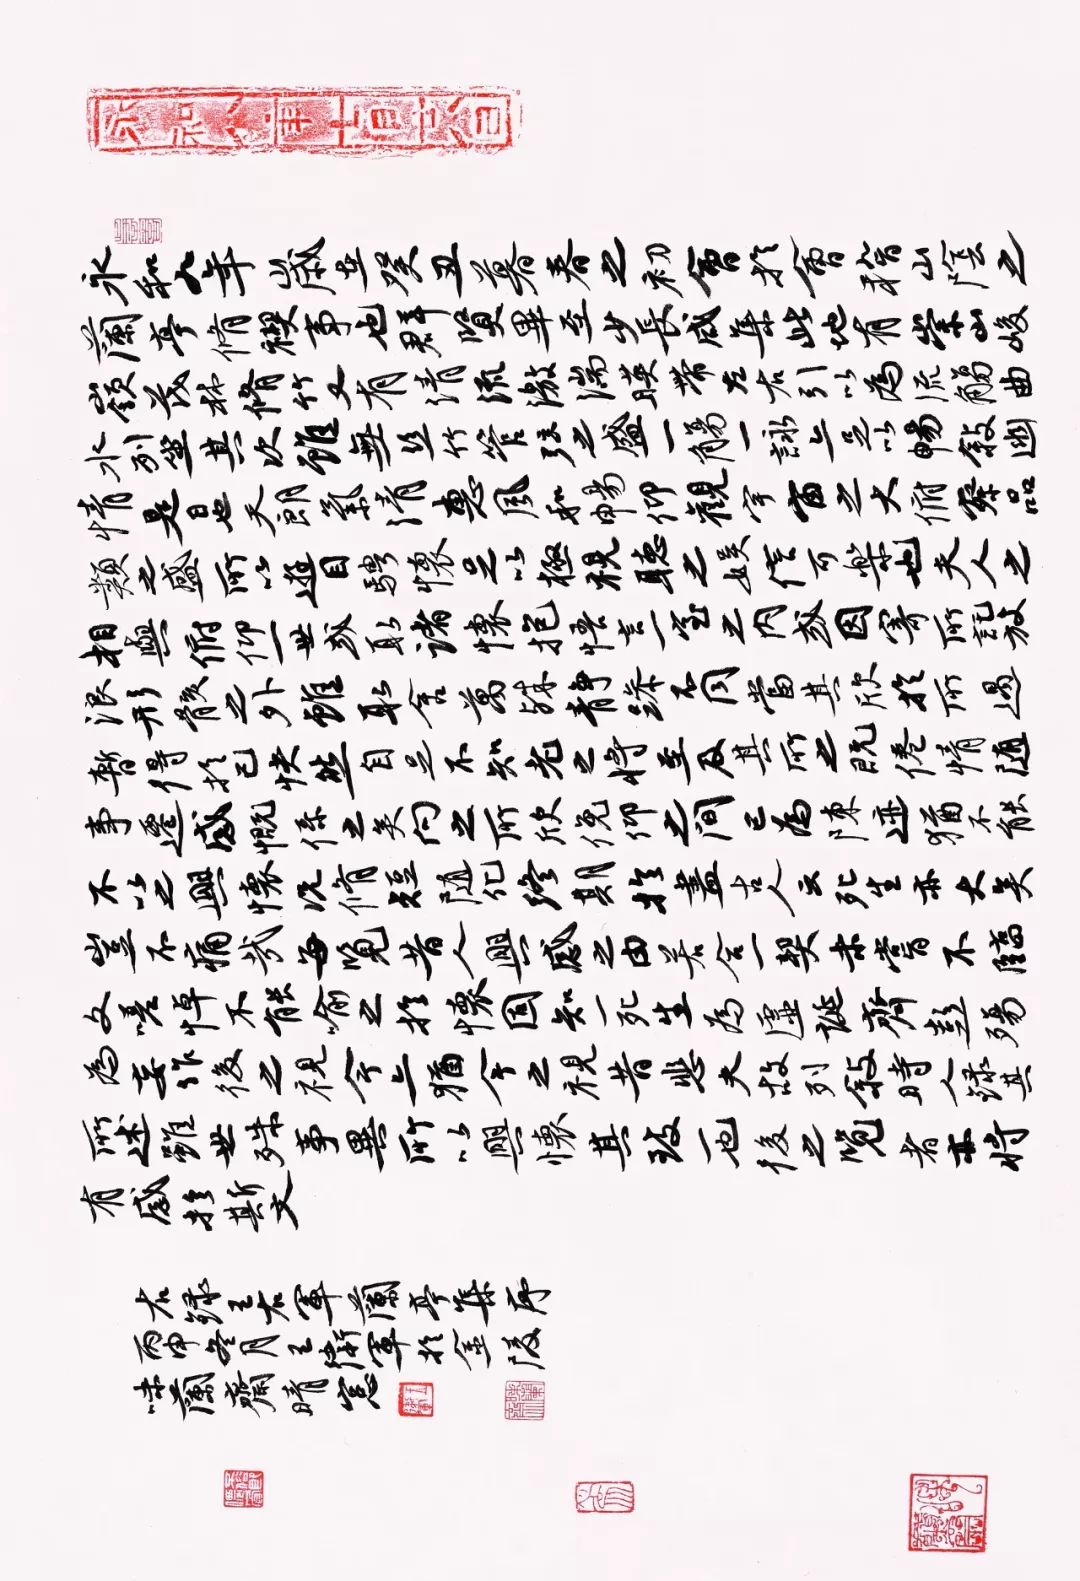 永和九年歲在癸丑暮春之初會於會稽山陰之
蘭亭脩禊事也群賢畢至少長咸集此地有崇山峻
領茂林脩竹又有清流激湍暎帶左右引以為流觴曲
水列坐其次雖無絲竹管弦之盛一觴一詠亦足以暢敘幽
情是日也天朗氣清惠風和暢仰觀宇宙之大俯察品
類之盛所以遊目騁懷足以極視聽之娛信可樂也夫人之
相與俯仰一世或取諸懷抱悟言一室之內或因寄所託放
浪形骸之外雖取舍萬殊靜躁不同當其欣於所遇
暫得於己怏然自足不知老之將至及其所之既倦情隨
事遷感慨係之矣向之所欣俛仰之間已為陳迹猶不能
不以之興懷況脩短隨化終期於盡古人云死生亦大矣
豈不痛哉每覽昔人興感之由若合一契未嘗不臨
文嗟悼不能喻之於懷固知一死生為虛誕齊彭殤
為妄作後之視今亦猶今之視昔悲夫故列敘時人錄其
所述雖世殊事異所以興懷其致一也後之覽者亦將
有感於斯文
右錄王右軍蘭亭集序
丙申冬月王衛軍於金陵
味蘭齋晴窗